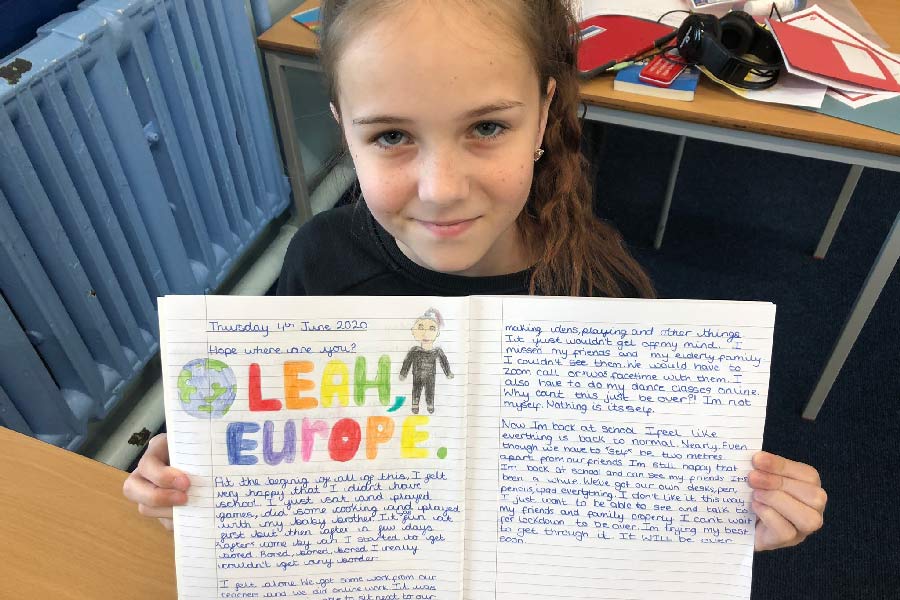 Thursday 4th June 2020
Hope where are you?
LEAH,
EUROPE.
At the begining of all of this, I felt
very happy that I didn't have
school. I just sat and played
games, did some cooking and played
with my baby brother. It fun at
first but then after a few days
come by I started to get
bored. Bored, bored, bored I really
couldn't get any
I felt alone. We got some work from our
teachers and we did online work. It was
to sit next to our
making dens, playing and other things
It just wouldn't get off my mind. I
missed my friends and my elderly family
I couldn't see them. We would have to
zoom call or was facetime with them. I
also have to do my dance classes online.
Why cant this just be over?! Im not
myself. Nothing is itsself.
Now Im back at school I feel like
everthing is back to normal. Nearly. Even
though we have to "stay" be two metres
apart from our friends Im still happy that
Im back at school and can see my friends It's
been a while. We've got our own desks, pen,
pencils, ipad everything. I don't like it this way
I just want to be able to see and talk to
my friends and family properly I can't wait
for lockdown to be over. Im trying my best
to get through it. It WILL be over
soon.